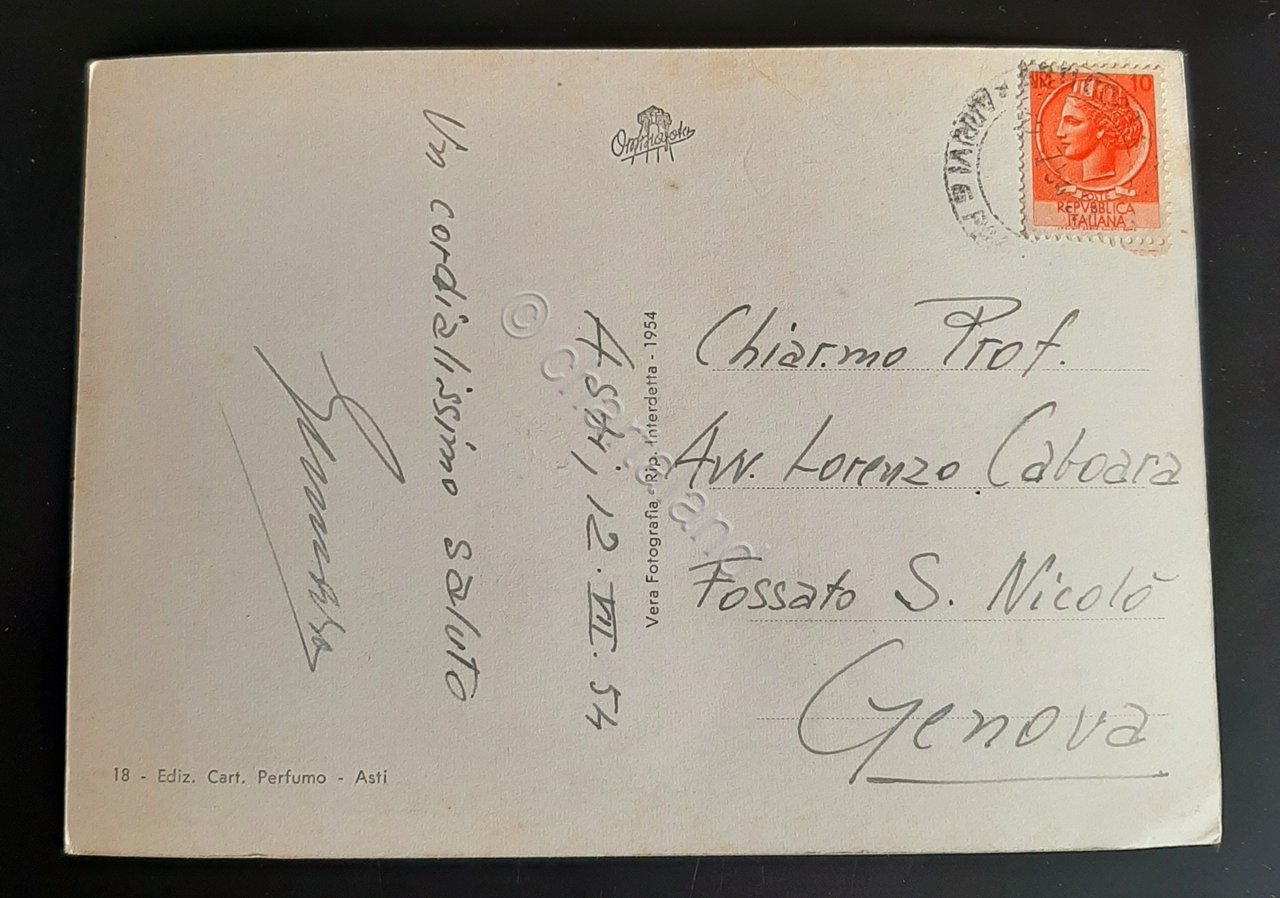 Un cordialissimo saluto
Asti, 12.VII.54
Omniafoto
Vera Fotografia - Rip. Interdetta - 1954
18 - Ediz. Cart. Perfumo - Asti
LIRE 10
POSTE
REPVBBLICA
ITALIANA
Chiar.mo Prof.
Avv. Lorenzo Caboara
Fossato S. Nicolò
Genova